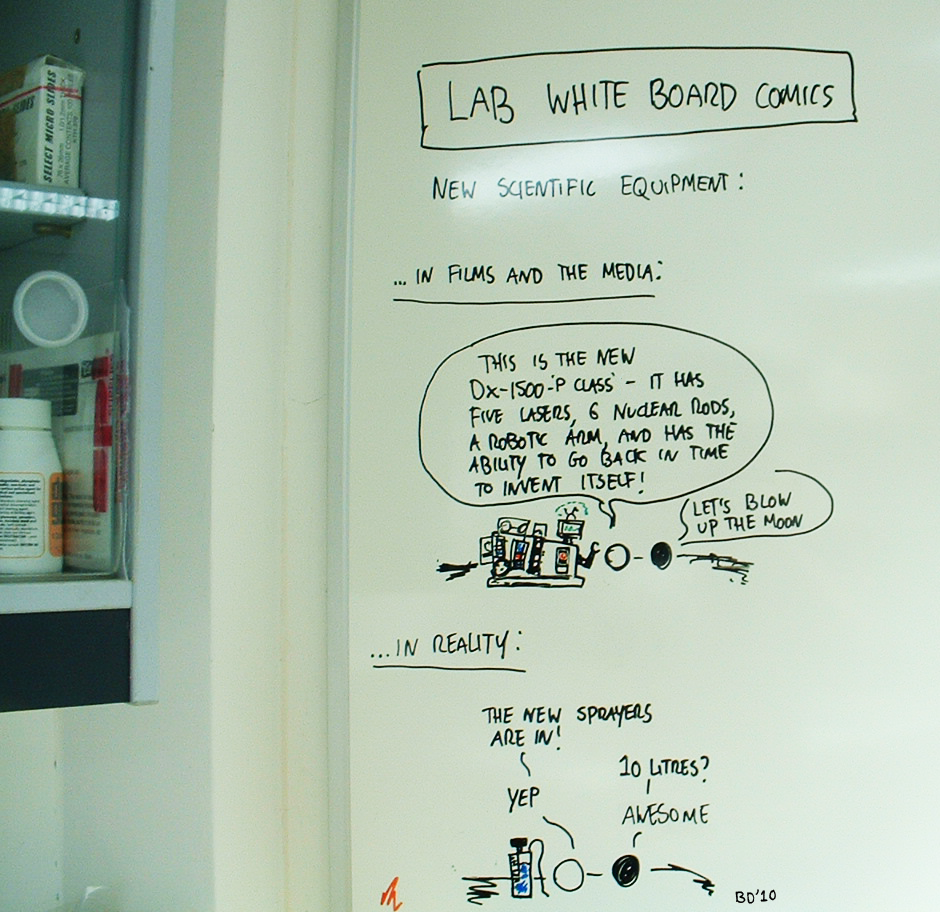 LAB WHITE BOARD COMICS
NEW SCIENTIFIC EQUIPMENT:
... IN FILMS AND THE MEDIA:
THIS IS THE NEW
DX-1500-'P CLASS' - IT HAS
FIVE LASERS, 6 NUCLEAR RODS,
A ROBOTIC ARM, AND HAS THE
ABILITY TO GO BACK IN TIME
TO INVENT ITSELF!
LET'S BLOW
UP THE MOON
...IN REALITY:
THE NEW SPRAYERS
ARE IN!
10 LITRES?
YEP
AWESOME
BD'10
SELECT MICRO SLIDES